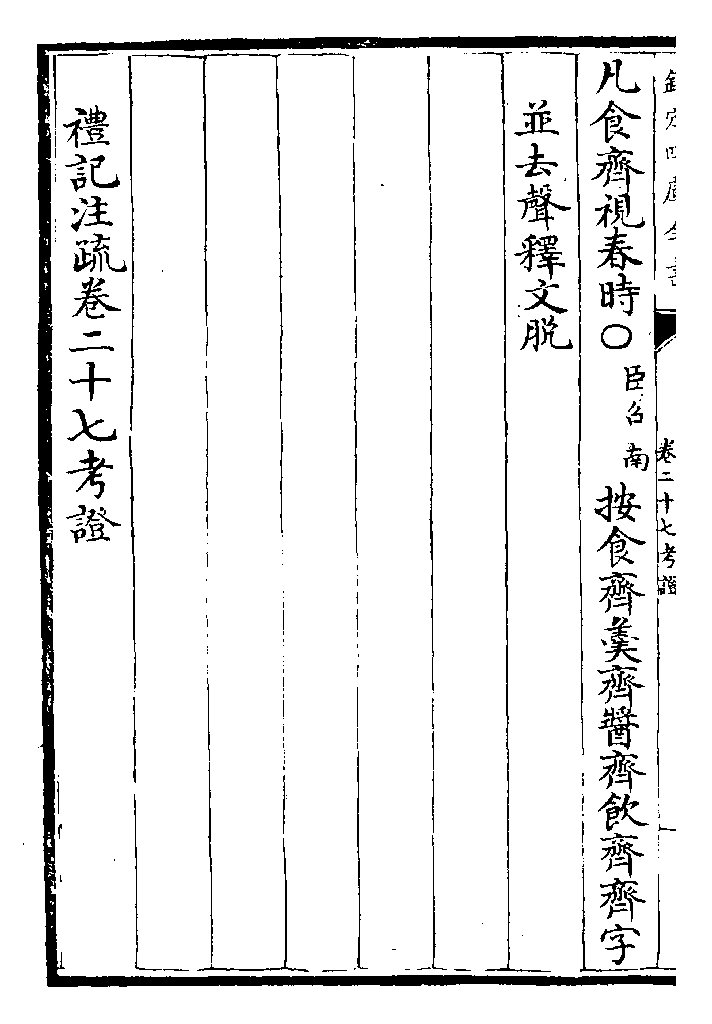 欽定四庫全書
卷二十七考證
凡食齊視春時〇臣召南按食齊羹齊醬齊飲齊齊字
並去聲釋文脱
禮記注疏卷二十七考證